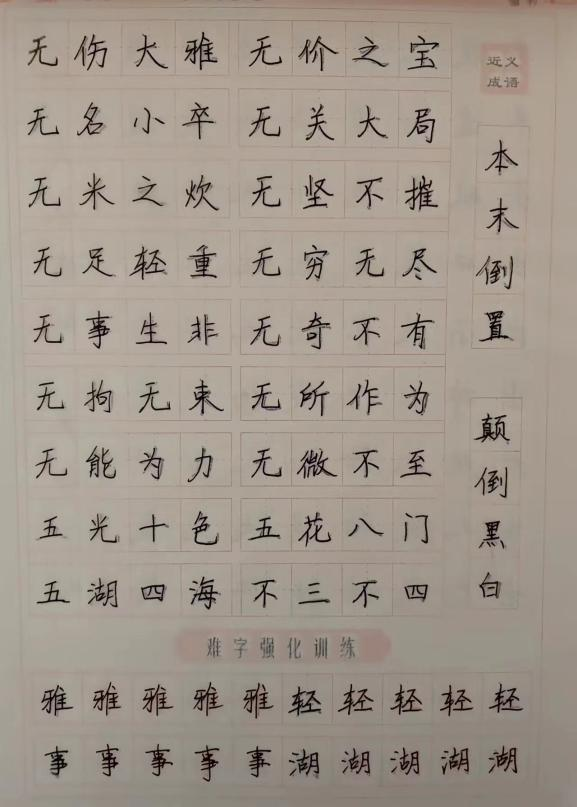 无伤大雅 无价之宝
无名小卒 无关大局
无米之炊 无坚不摧
无足轻重 无穷无尽
无事生非 无奇不有
无拘无束 无所作为
无能为力 无微不至
五光十色 五花八门
五湖四海 不三不四
近义成语
本末倒置
颠倒黑白
难字强化训练
雅雅雅雅雅轻轻轻轻轻
事事事事事湖湖湖湖湖